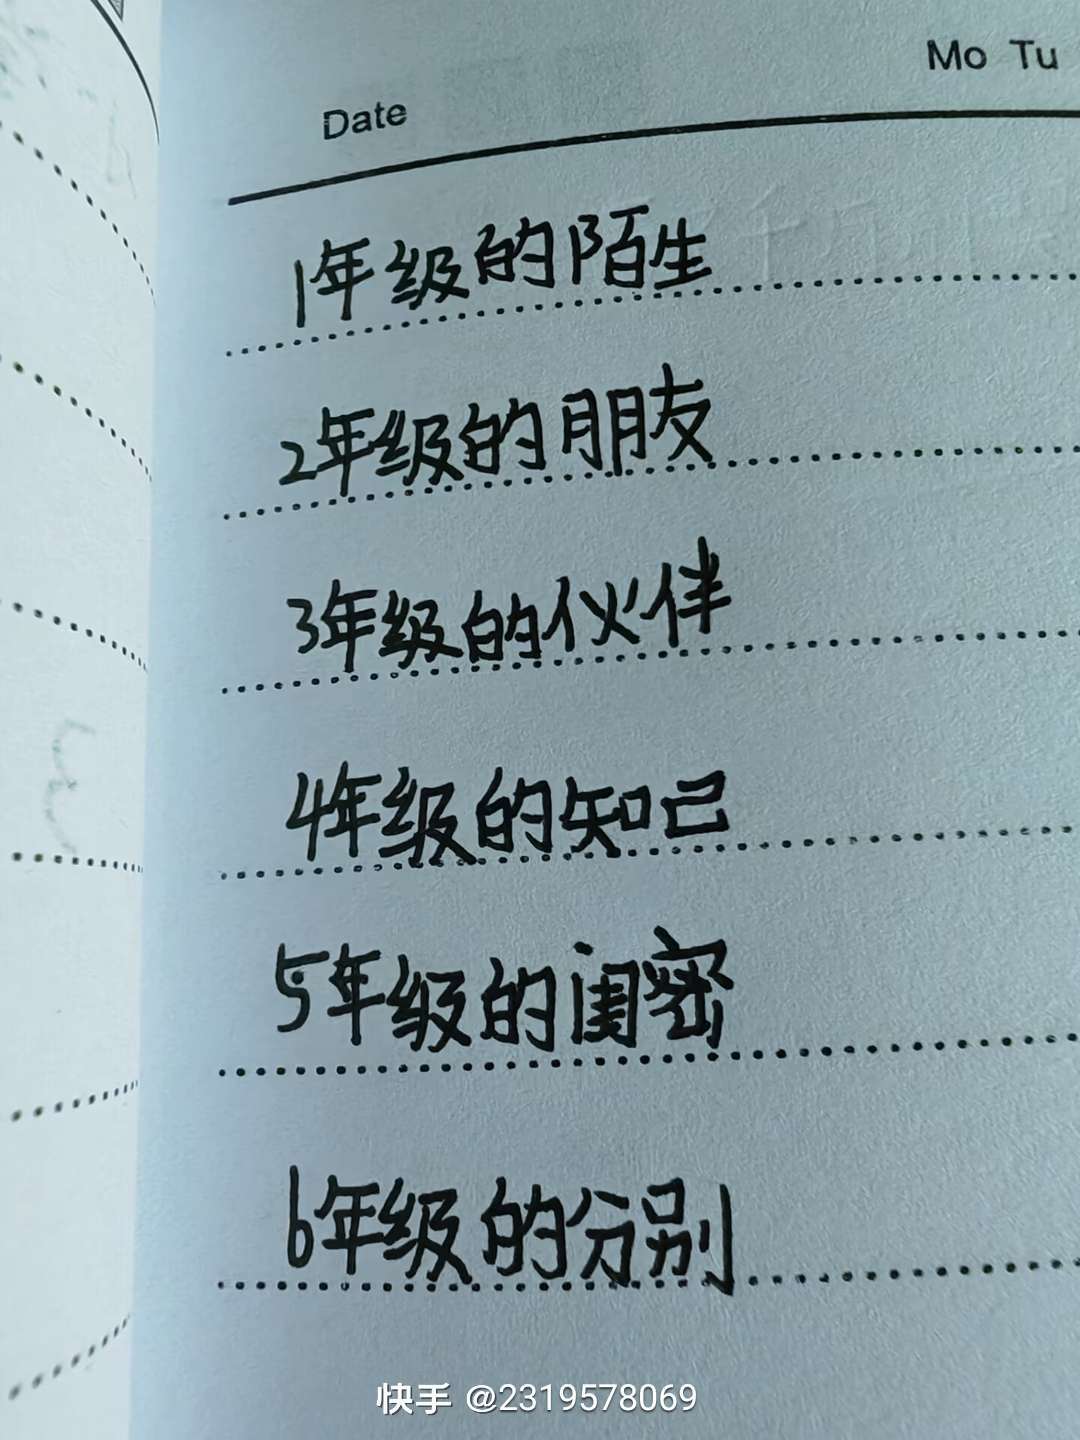 Mo Tu
Date
1年级的陌生
2年级的朋友
3年级的伙伴
4年级的知己
5年级的闺密
6年级的分别
快手 @2319578069